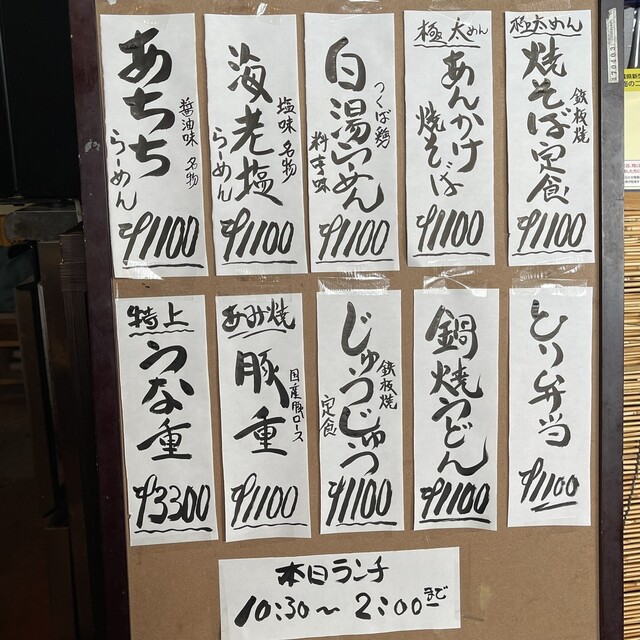 極太めん
焼そば定食
鉄板焼
¥1100
極太めん
あんかけ
焼そば
¥1100
つくば鶏
白湯らーめん
¥1100
塩味 名物
海老塩
らーめん
¥1100
醤油味 名物
あちち
らーめん
¥1100
とり弁当
¥1100
鍋焼うどん
¥1100
鉄板焼
じゅうじゅう
定食
¥1100
あみ焼
豚重
国産豚ロース
¥1100
特上
うな重
¥3300
本日ランチ
10:30～2:00まで